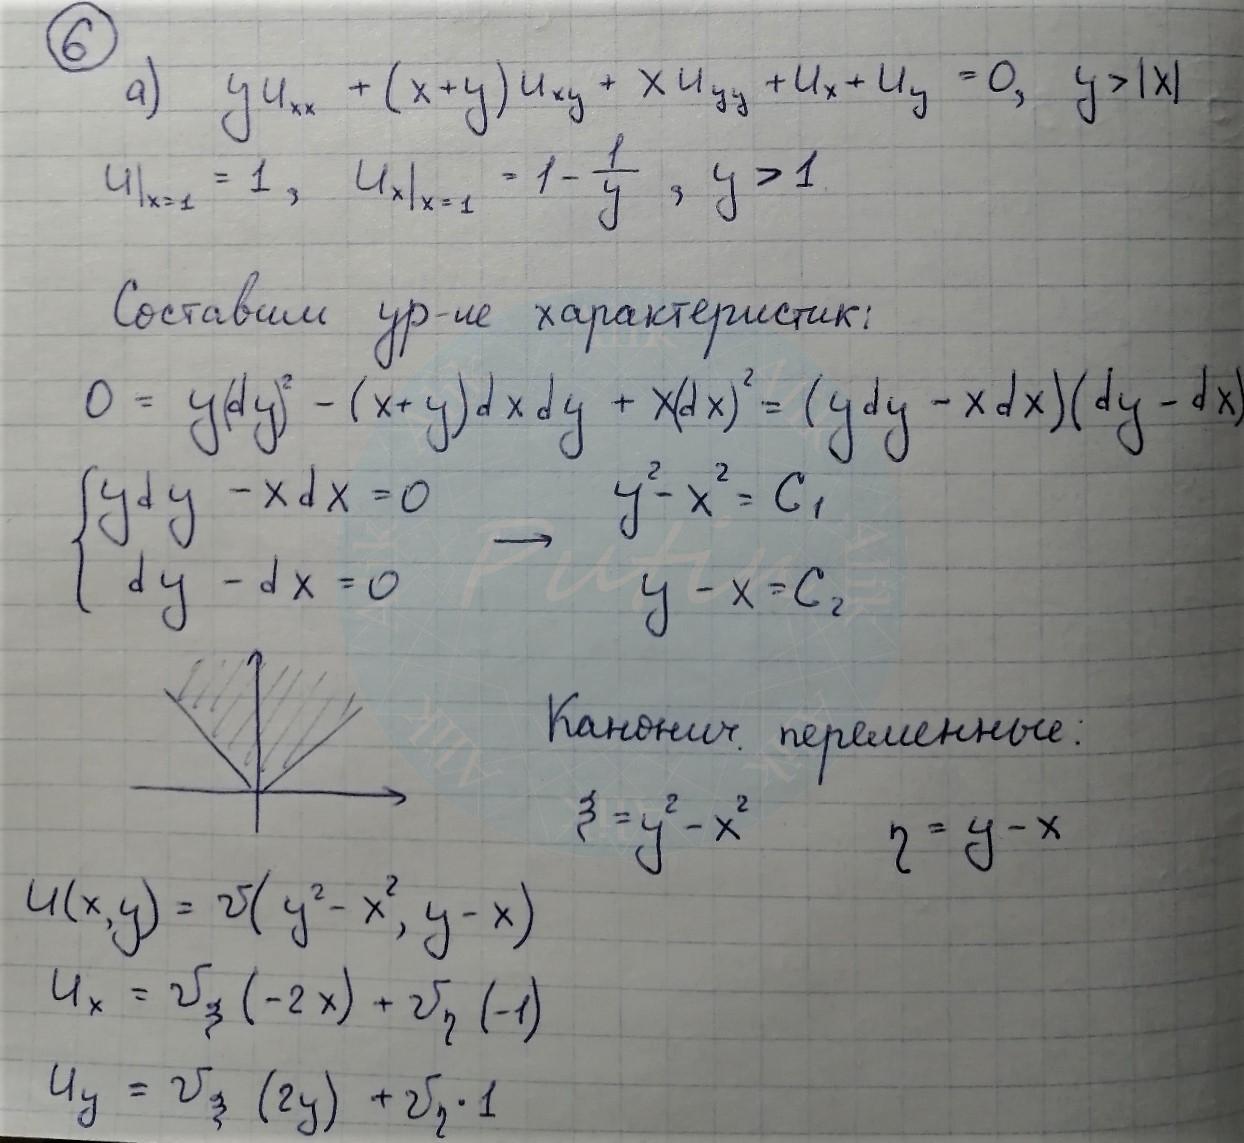 6
а) y u_xx + (x+y) u_xy + x u_yy + u_x + u_y = 0, y > |x|
u|_x=1 = 1, u_x|_x=1 = 1 - 1/y, y > 1
Составим ур-ие характеристик:
0 = y(dy)² - (x+y)dxdy + x(dx)² = (ydy - xdx)(dy - dx)
{ ydy - xdx = 0 y² - x² = C₁
dy - dx = 0 → y - x = C₂
Канонич. переменные:
ξ = y² - x² η = y - x
u(x,y) = v(y² - x², y - x)
u_x = v_ξ (-2x) + v_η (-1)
u_y = v_ξ (2y) + v_η · 1
Putin